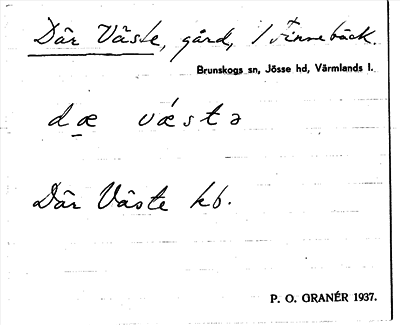 Där Väste, gård, i Finnebäck.
Brunskogs sn, Jösse hd, Värmlands l.
dæ vǽstə
Där Väste kb.
P. O. GRANÉR 1937.